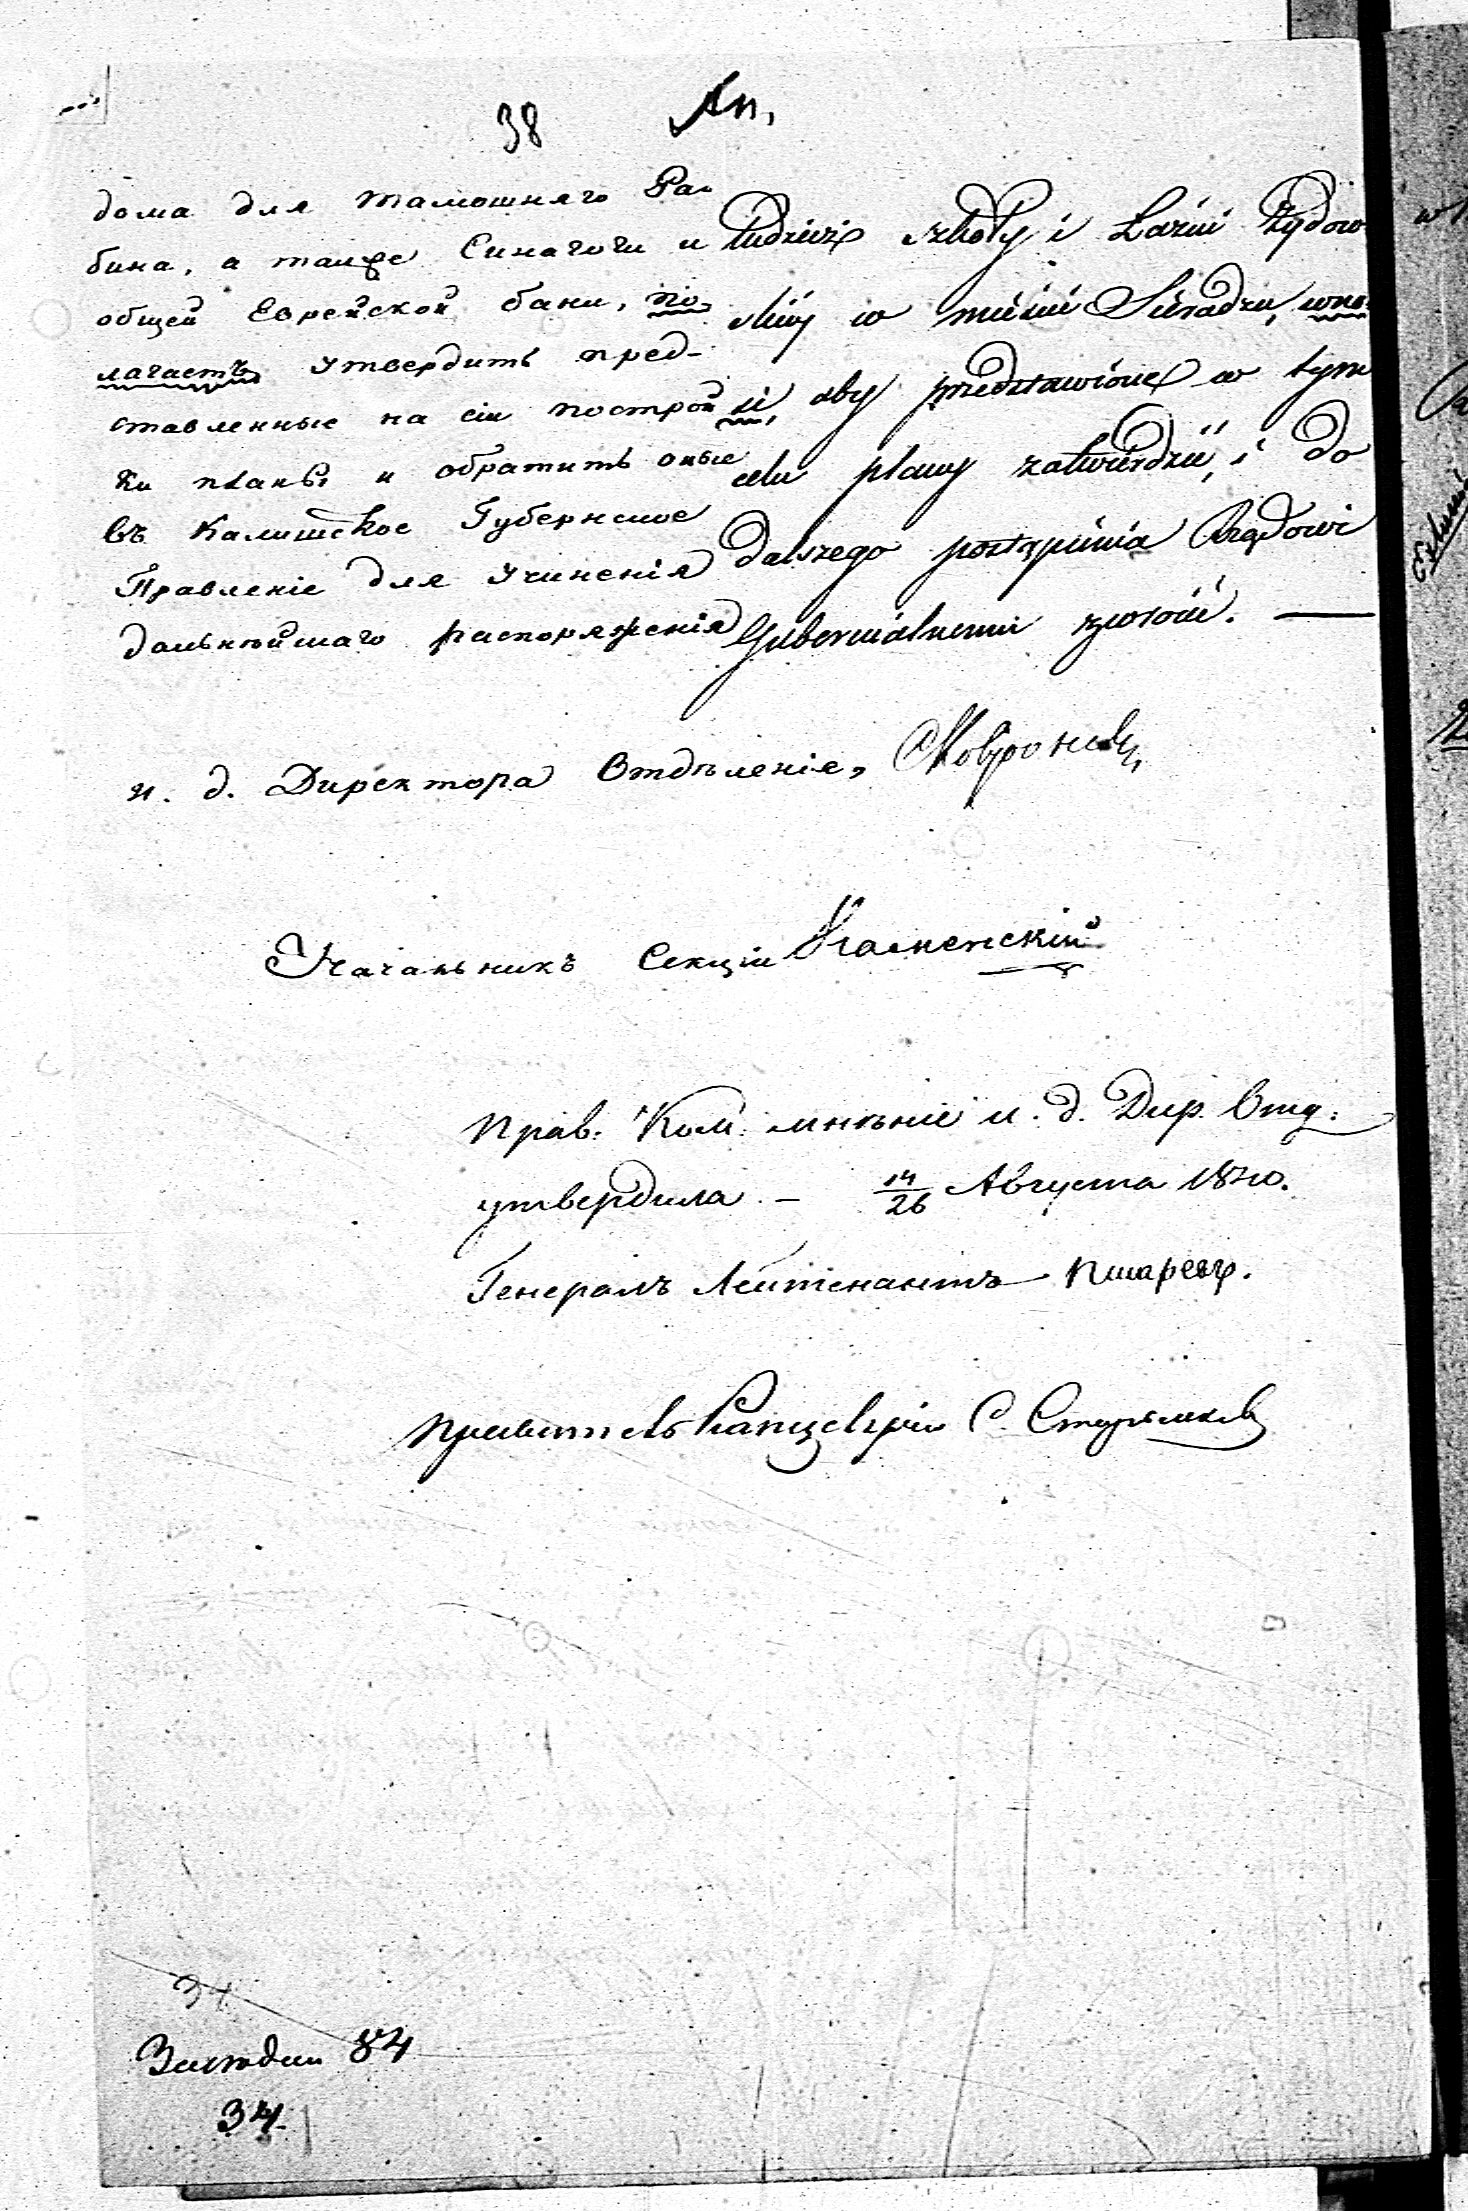 38
дома для тамошняго Ра-
бина, а также Синагоги и
общей Еврейской бани, по-
лагаетъ утвердить пред-
ставленные на сіи построй
ки планы и обратить оные
въ Калишское Губернское
Правленіе для учиненія
дальнѣйшаго распоряженія
tudzież szkoły i Łaźni Żydow
skiéy w mieście Sieradzu, wno
si, aby przedstawione w tym
celu plany zatwierdzić, i do
dalszego postąpienia Rządowi
Gubernialnemu zwrócić. —
и. д. Директора Отдѣленія,
Начальникъ Секціи Каменскій
Прав: Ком: мнѣніе и. д. Дир. Отд:
утвердила. — 14/26 Августа 1840.
Генералъ Лейтенантъ
Правитель Канцеляріи С.
34
Засѣдан 84
34